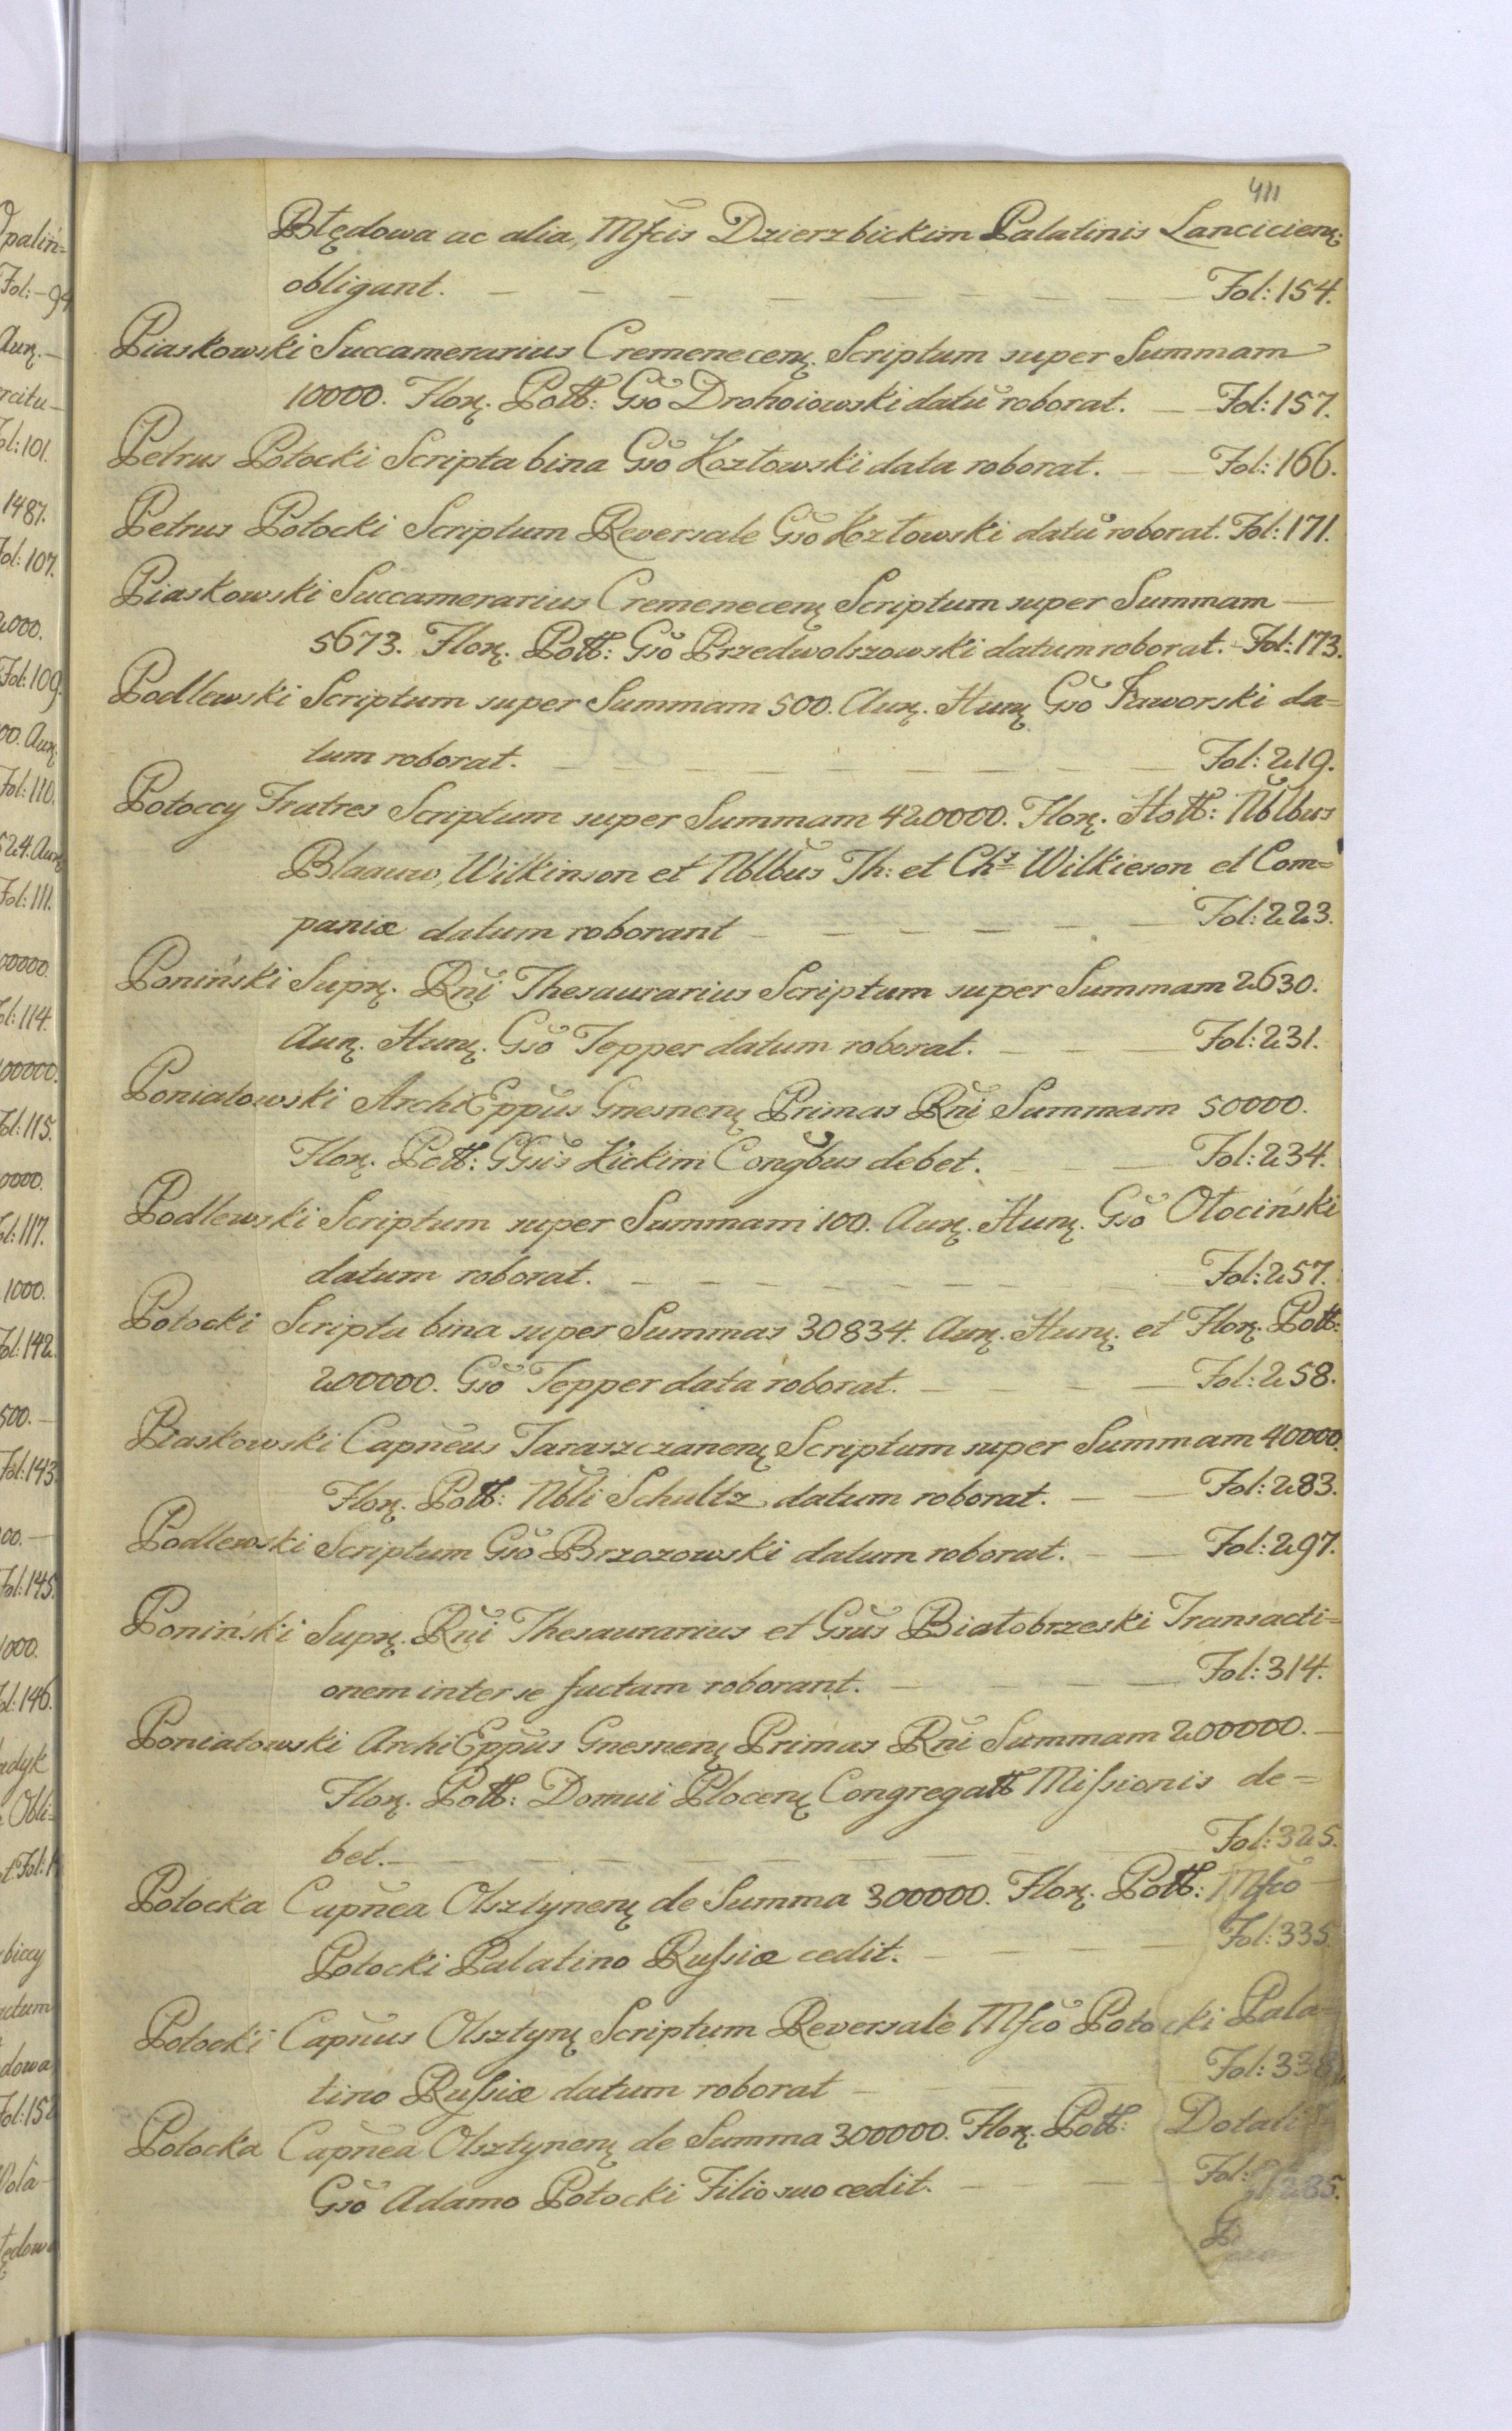 411
Błędowa ac alia, Mfcis Dzierzbickim Palatinis Lanciciens:
obligant. Fol: 154.
Piaskowski Succamerarius Cremenecen. Scriptum super Summam
10000. Flor. Poll: Gso Drohoiowski datu roborat. Fol: 157.
Petrus Potocki Scripta bina Gso Kozłowski data roborat. Fol: 166.
Petrus Potocki Scriptum Reversale Gso Kozłowski datu roborat. Fol: 171.
Piaskowski Succamerarius Cremenecen Scriptum super Summam
5673. Flor. Poll: Gso Przedwolszowski datum roborat. Fol: 173.
Podlewski Scriptum super Summam 500. Aur. Hun Gso Jaworski da=
tum roborat. Fol: 219.
Potoccy Fratres Scriptum super Summam 420000. Flor. Holl: Nblbus
Blaauw, Wilkinson et Nblbus Th: et Chs Wilkieson et Com=
paniæ datum roborant Fol: 223.
Poniński Supr. Rni Thesaurarius Scriptum super Summam 2630.
Aur. Hun. Gso Tepper datum roborat. Fol: 231.
Poniatowski ArchiEppus Gnesnen Primas Rni Summam 50000.
Flor. Poll: GGsis Kickim Congbus debet. Fol: 234.
Podlewski Scriptum super Summam 100. Aur. Hun. Gso Otociński
datum roborat. Fol: 257.
Potocki Scripta bina super Summas 30834. Aur. Hun. et Flor. Poll:
200000. Gso Tepper data roborat. Fol: 258.
Piaskowski Capneus Taraszczanen Scriptum super Summam 40000.
Flor. Poll: Nbli Schultz datum roborat. Fol: 283.
Podlewski Scriptum Gso Brzozowski datum roborat. Fol: 297.
Poniński Supr. Rni Thesaurarius et Gsus Białobrzeski Transacti=
onem inter se factam roborant. Fol: 314.
Poniatowski ArchiEppus Gnesnen Primas Rni Summam 200000.
Flor. Poll: Domui Plocen Congregatt Missionis de=
bet. Fol: 325.
Potocka Capnea Olsztynen de Summa 300000. Flor. Poll: Mfco
Potocki Palatino Russiæ cedit. Fol: 335.
Potocki Capnus Olsztyn Scriptum Reversale Mfco Potocki Pala=
tino Russiæ datum roborat Fol: 338.
Potocka Capnea Olsztynen de Summa 300000. Flor. Poll: Dotali
Gso Adamo Potocki Filio suo cedit. Fol: